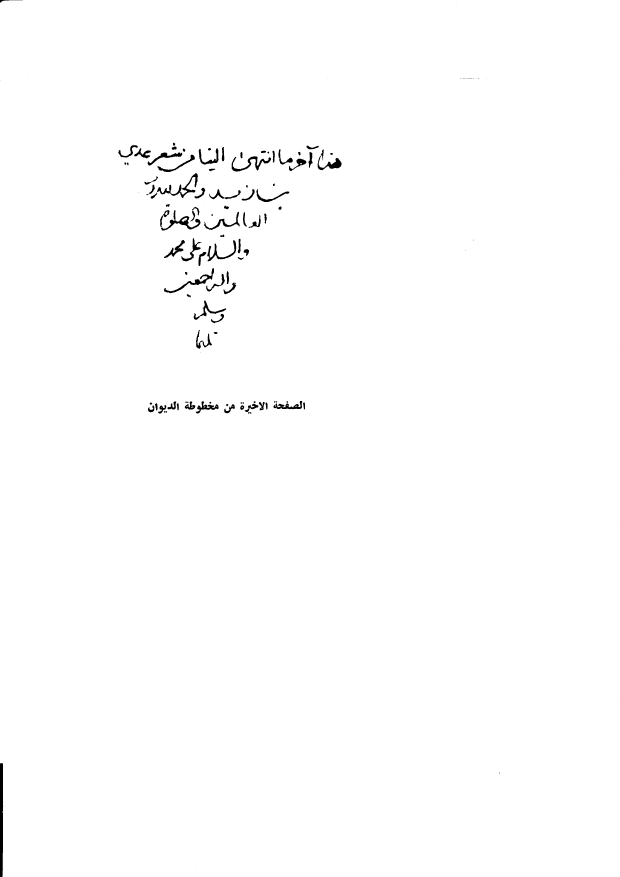 هذا آخر ما انتهى الينا من شعر عدي
بن زيد والحمد لله رب
العالمين والصلوة
والسلام على محمد
واله اجمعين
وسلم
تسليما
الصفحة الاخيرة من مخطوطة الديوان